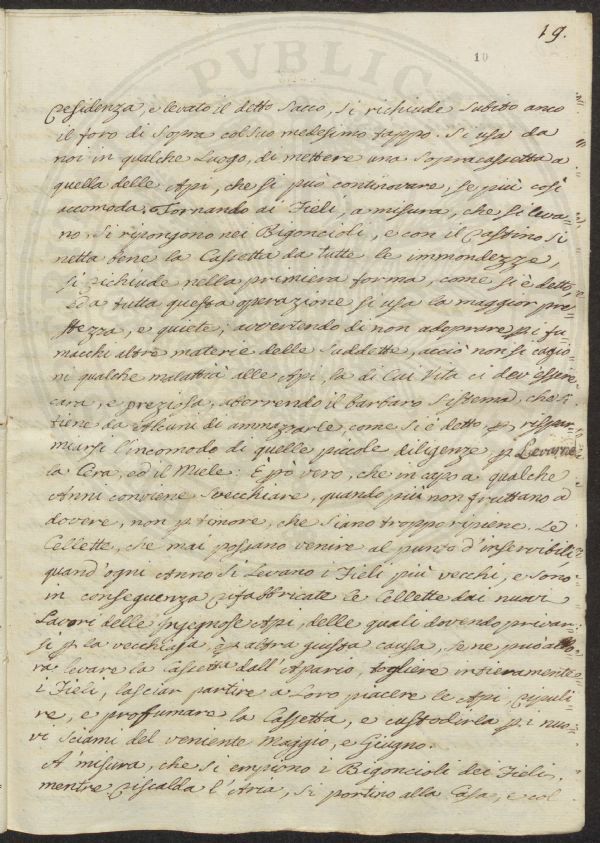 19.
10
residenza, e levato il detto Sacco, si richiude Subito anco
il foro di Sopra col suo medesimo tappo. Si usa da
noi in qualche Luogo, di mettere una Sopracassetta a
quella delle Api, che si può continovare, se più così
accomoda. Tornando ai Fieli, a misura, che si leva=
no, si ripongono nei Bigoncioli, e con il Pastino si
netta bene la Cassetta da tutte le immondezze,
si richiude nella primiera forma, come si è detto,
ed a tutta questa operazione si usa la maggior pre
stezza, e quiete; avvertendo di non adoprare p i fu
macchi altre materie delle Suddette, acciò non si cagio
ni qualche malattia alle Api, la di Cui Vita ci dev'esser
cara, e preziosa, aborrendo il barbaro Sistema, che si
tiene da Alcuni di ammazzarle, come si è detto p rispar
miarsi l'incomodo di quelle piccole diligenze p Levarne
la Cera, ed il Miele: È pò vero, che in capo a qualche
Anni conviene Svecchiare, quando più non fruttano a
dovere, non p timore, che Siano troppo ripiene Le
Cellette, che mai possano venire al punto d'inservibili,
quand'ogni Anno Si Levano i Fieli più vecchi, e Sono
in conseguenza rifabbricate le Cellette dai nuovi
Lavori delle Ingegnose Api, delle quali dovendo privar=
si p la vecchiaja, o p altra giusta causa, Se ne può allo
ra levare la Cassetta dall'Apario, togliere insieramente
i Fieli, lasciar partire a Loro piacere le Api, ripuli
re, e proffumare la Cassetta, e custodirla p i nuo
vi Sciami del veniente Maggio, e Giugno.
A' misura, che si empiono i Bigoncioli dei Fieli,
mentre riscalda l'Aria, Si portino alla Casa, e col